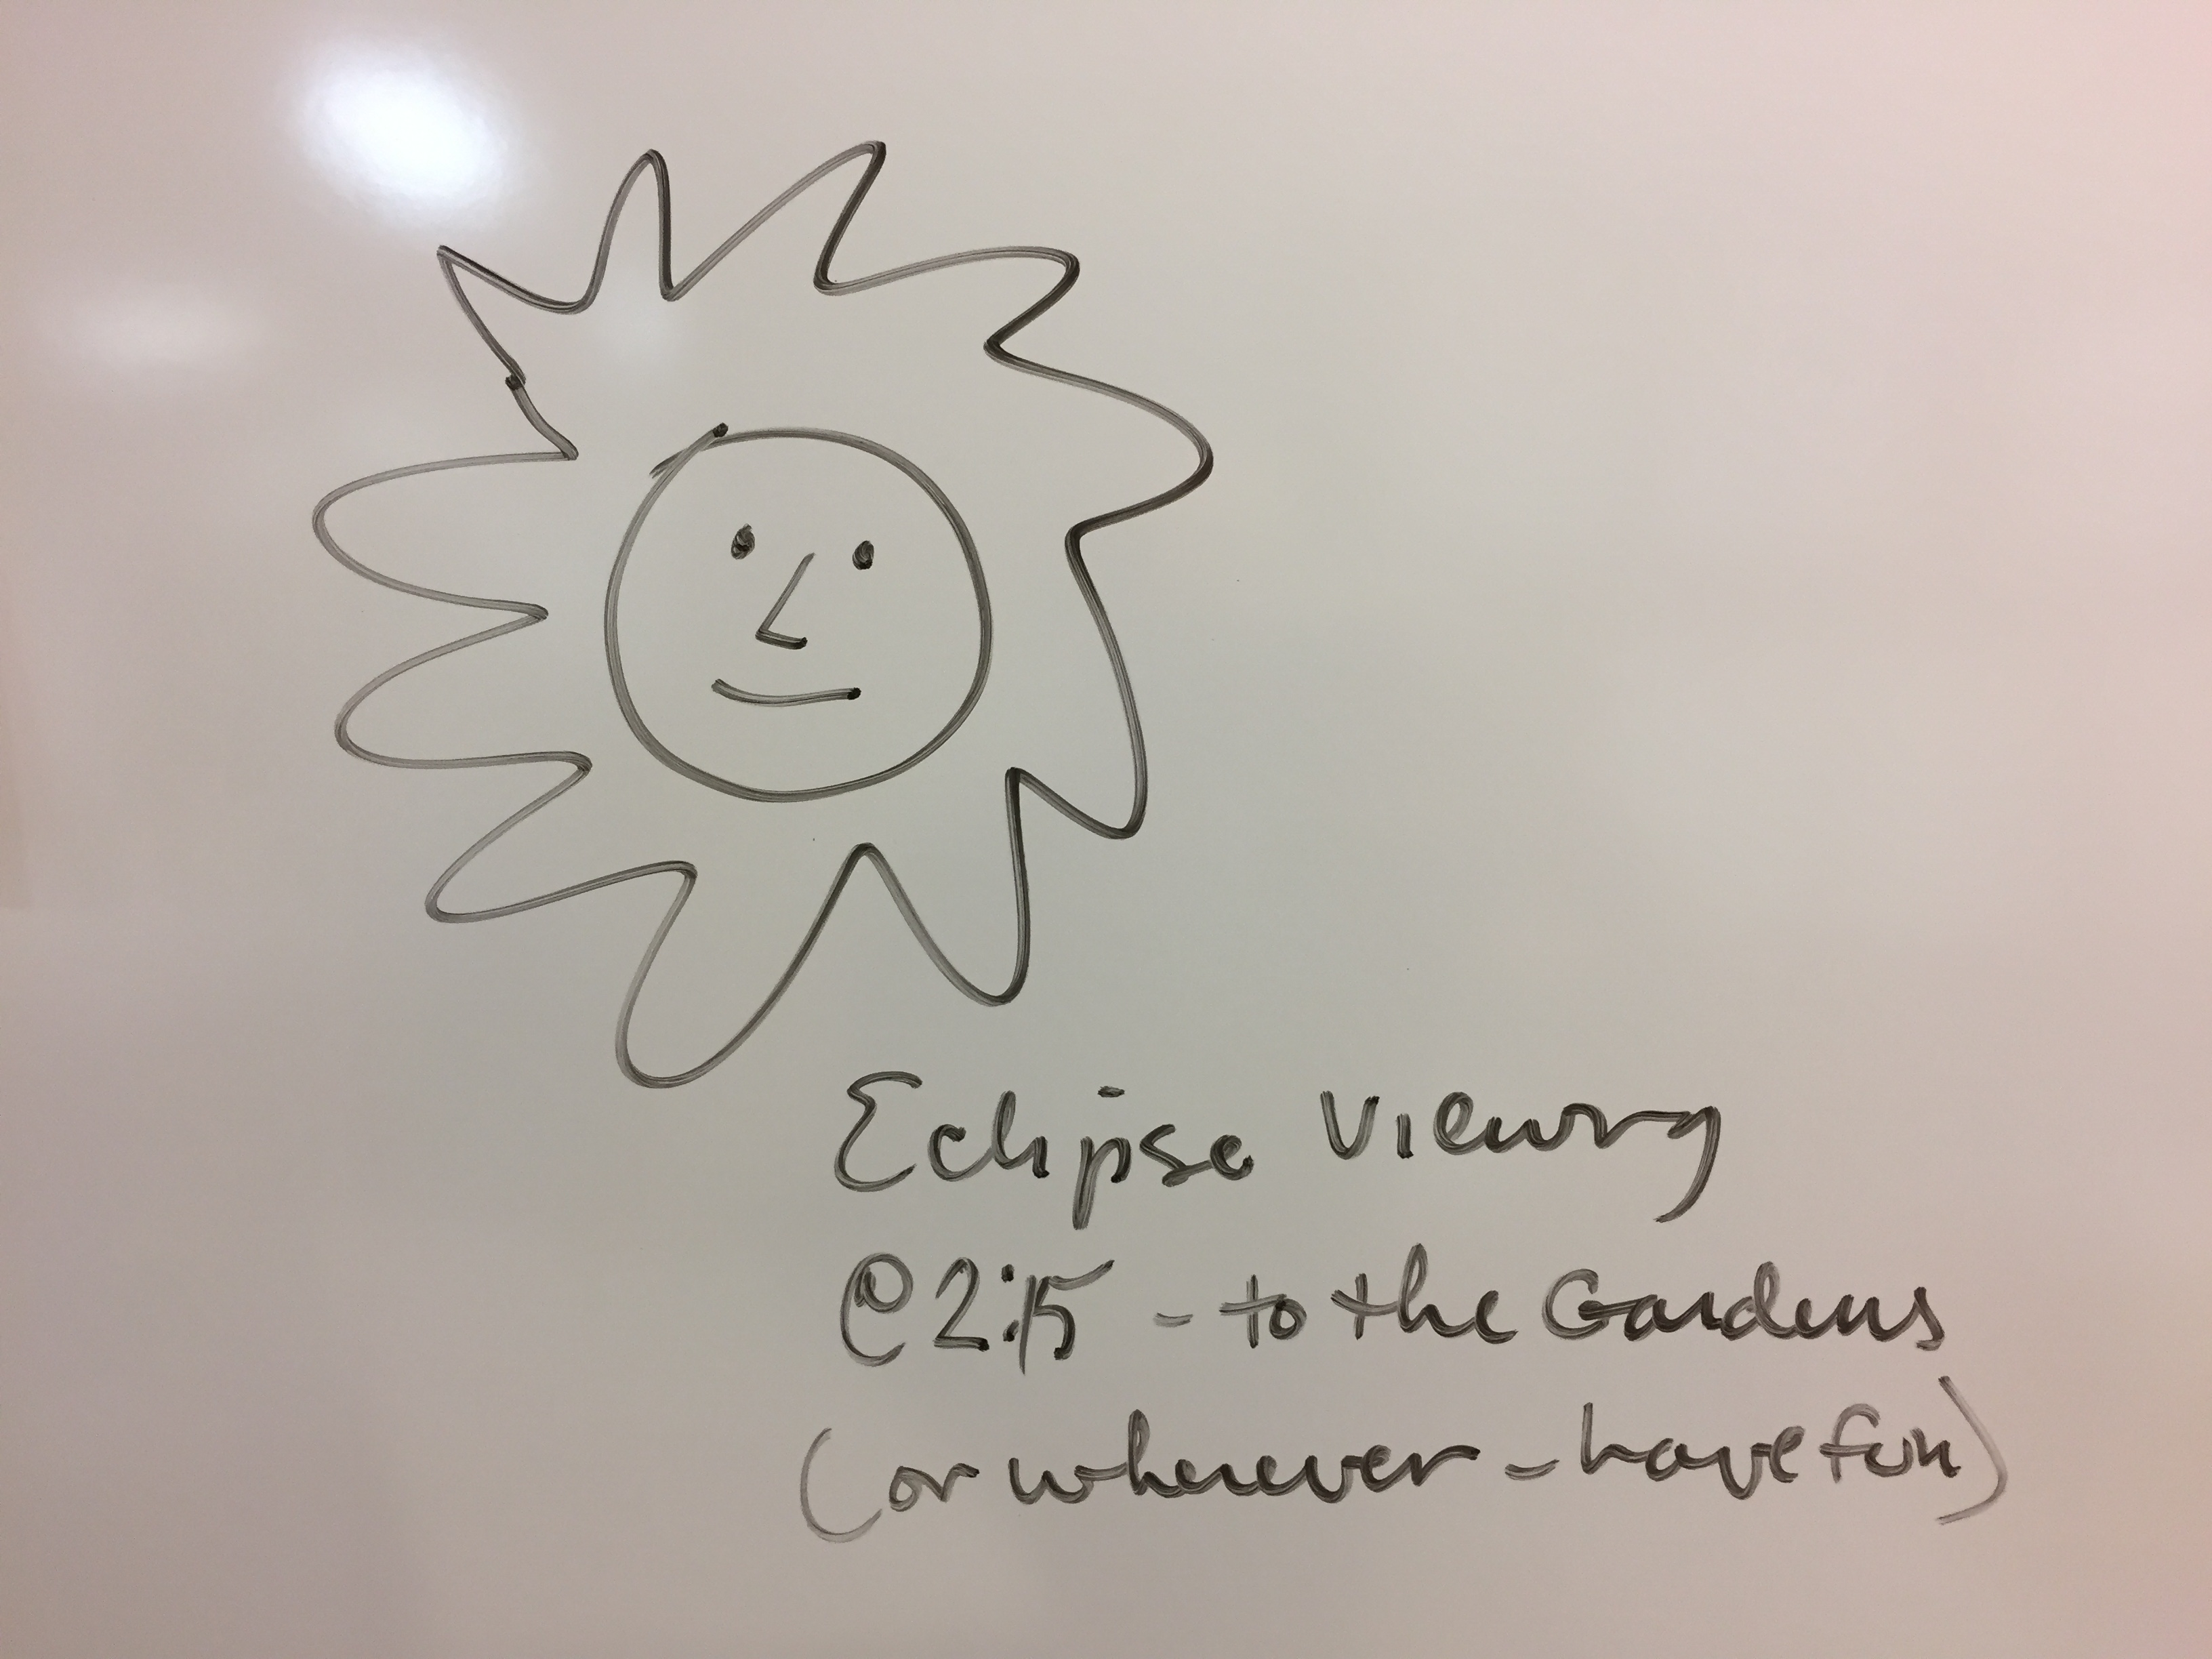 Eclipse Viewing
@ 2:15 - to the Gardens
(or wherever - have fun)